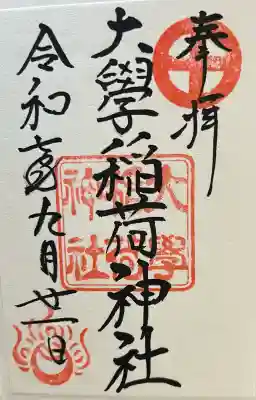 奉拝
大學稲荷神社
令和六年九月廿一日
大學稲荷神社